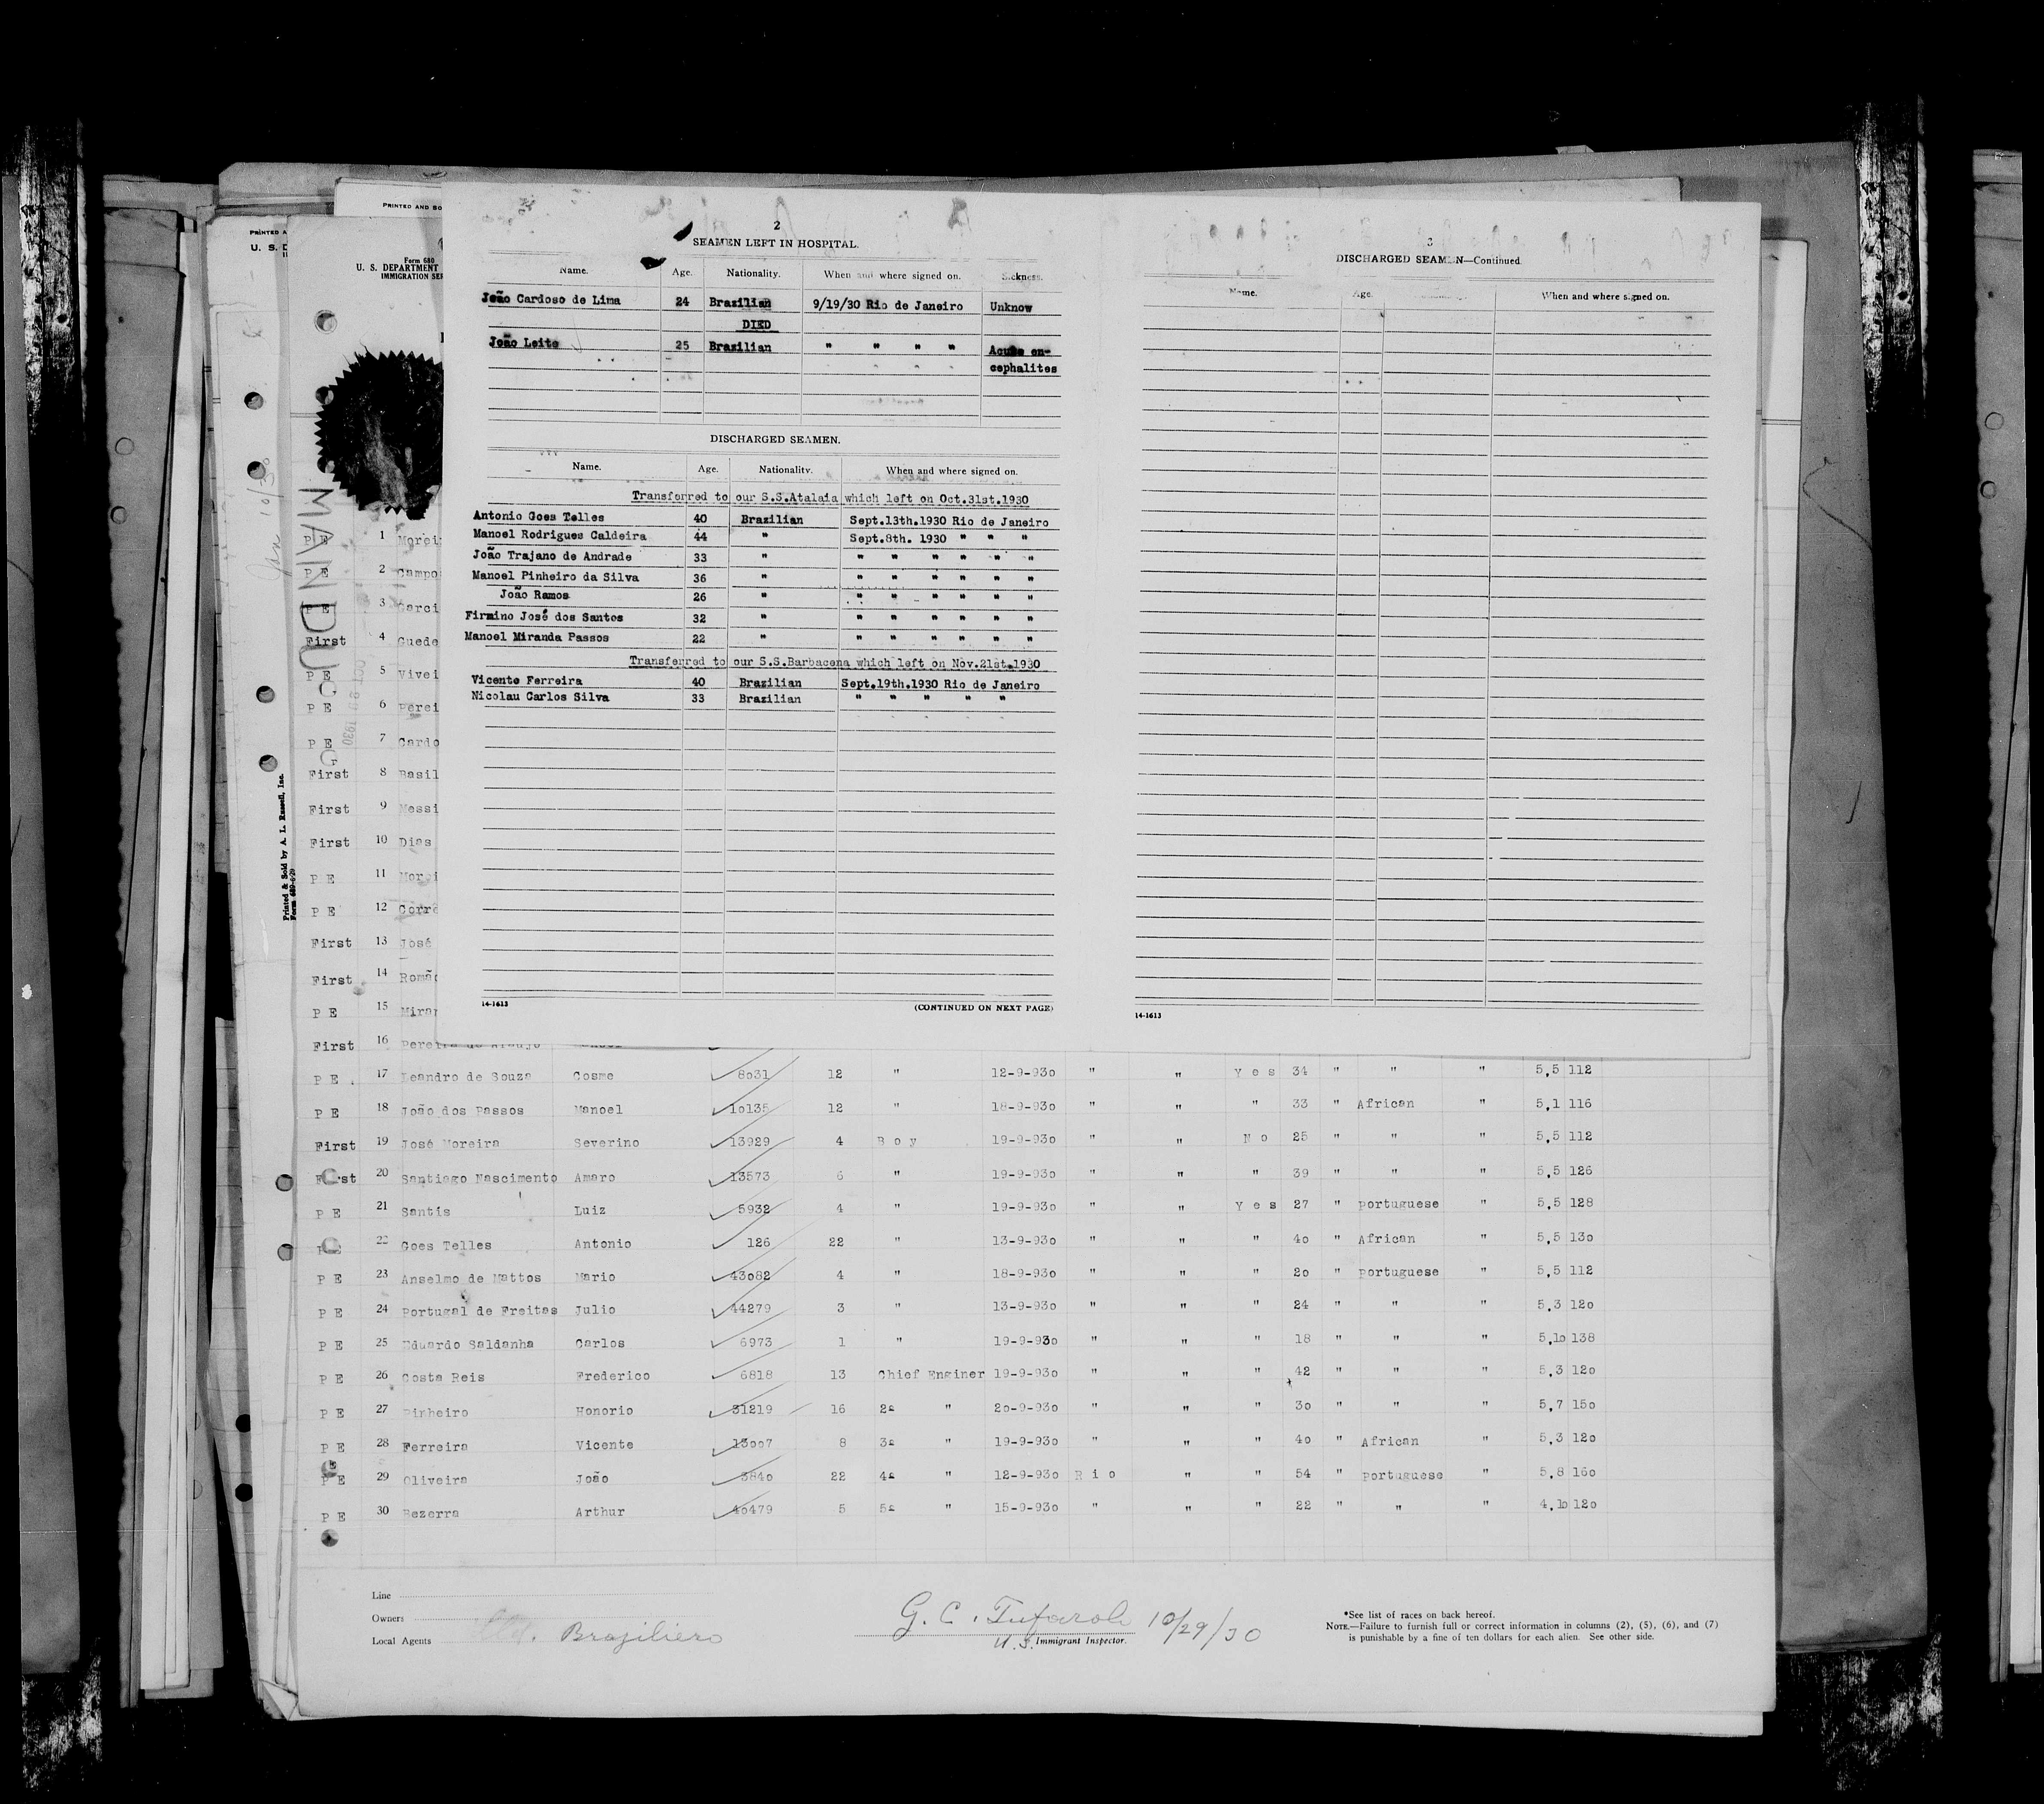 PRINTED AND SO
PRINTED A
U. S. D
Form 680
U. S. DEPARTMENT
IMMIGRATION SER
2
SEAMEN LEFT IN HOSPITAL.
Name. Age. Nationality. When and where signed on. Sickness.
João Cardoso de Lima 24 Brazilian 9/19/30 Rio de Janeiro Unknow
DIED
João Leite 25 Brazilian " " " " Acute en-
cephalites
DISCHARGED SEAMEN.
Name. Age. Nationality. When and where signed on.
Transferred to our S.S.Atalaia which left on Oct.31st.1930
Antonio Goes Telles 40 Brazilian Sept.13th.1930 Rio de Janeiro
Manoel Rodrigues Caldeira 44 " Sept.8th. 1930 " " "
João Trajano de Andrade 33 " " " " " " "
Manoel Pinheiro da Silva 36 " " " " " " "
João Ramos 26 " " " " " " "
Firmino José dos Santos 32 " " " " " " "
Manoel Miranda Passos 22 " " " " " " "
Transferred to our S.S.Barbacena which left on Nov.21st.1930
Vicente Ferreira 40 Brazilian Sept.19th.1930 Rio de Janeiro
Nicolau Carlos Silva 33 Brazilian " " " " "
14-1613 (CONTINUED ON NEXT PAGE)
3
DISCHARGED SEAMEN—Continued.
Name. Age. When and where signed on.
14-1613
MANDU
OCT 1930
Printed & Sold by A. L. Russell, Inc.
Form 689-6-29
P E 1 Morei
P E 2 Campo
P E 3 Garci
First 4 Guede
P E 5 Vivei
P E 6 Perei
P E 7 Cardo
First 8 Basil
First 9 Messi
First 10 Dias
P E 11 Morei
P E 12 Corrê
First 13 José
First 14 Romão
P E 15 Miran
First 16 Pereira de Araujo Manoel
P E . 17 Leandro de Souza Cosme 8031 12 " 12-9-930 " " Y e s 34 " " " 5,5 112
P E 18 João dos Passos Manoel 10135 12 " 18-9-930 " " " 33 " African " 5,1 116
First 19 José Moreira Severino 13929 4 B o y 19-9-930 " " N o 25 " " " 5,5 112
First 20 Santiago Nascimento Amaro 13573 6 " 19-9-930 " " " 39 " " " 5,5 126
P E 21 Santis Luiz 5932 4 " 19-9-930 " " Y e s 27 " Portuguese " 5,5 128
P E 22 Goes Telles Antonio 126 22 " 13-9-930 " " " 40 " African " 5,5 130
P E 23 Anselmo de Mattos Mario 43082 4 " 18-9-930 " " " 20 " Portuguese " 5,5 112
P E 24 Portugal de Freitas Julio 44279 3 " 13-9-930 " " " 24 " " " 5,3 120
P E 25 Eduardo Saldanha Carlos 6973 1 " 19-9-930 " " " 18 " " " 5,10 138
P E 26 Costa Reis Frederico 6818 13 Chief Enginer 19-9-930 " " " 42 " " " 5,3 120
P E 27 Pinheiro Honorio 31219 16 2a " 20-9-930 " " " 30 " " " 5,7 150
P E 28 Ferreira Vicente 13007 8 3a " 19-9-930 " " " 40 " African " 5,3 120
P E 29 Oliveira João 3840 22 4a " 12-9-930 R i o " " 54 " Portuguese " 5,8 160
P E 30 Bezerra Arthur 40479 5 5a " 15-9-930 " " " 22 " " " 4,10 120
Line
Owners
Local Agents Braziliero
G. C. Tufaroli 10/29/30
U.S. Immigrant Inspector.
*See list of races on back hereof.
NOTE.—Failure to furnish full or correct information in columns (2), (5), (6), and (7)
is punishable by a fine of ten dollars for each alien. See other side.